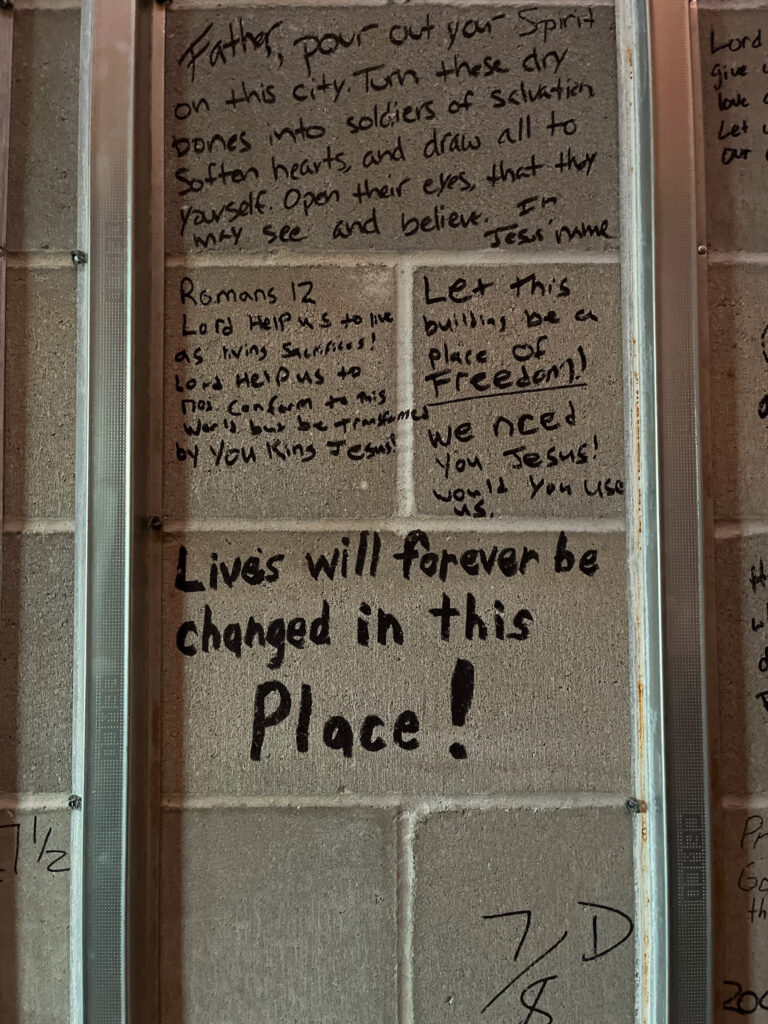 Father, pour out your Spirit
on this city. Turn these dry
bones into soldiers of salvation
Soften hearts, and draw all to
yourself. Open their eyes, that they
may see and believe. In
Jesus' name
Romans 12
Lord Help us to live
as living Sacrifices!
Lord Help us to
not conform to this
World but be Transformed
by You King Jesus!
Let this
building be a
place of
Freedom!
we need
you Jesus!
would you use
us.
Lives will forever be
changed in this
Place!
7 1/2
7/8 D
Lord
give
love
Let
our